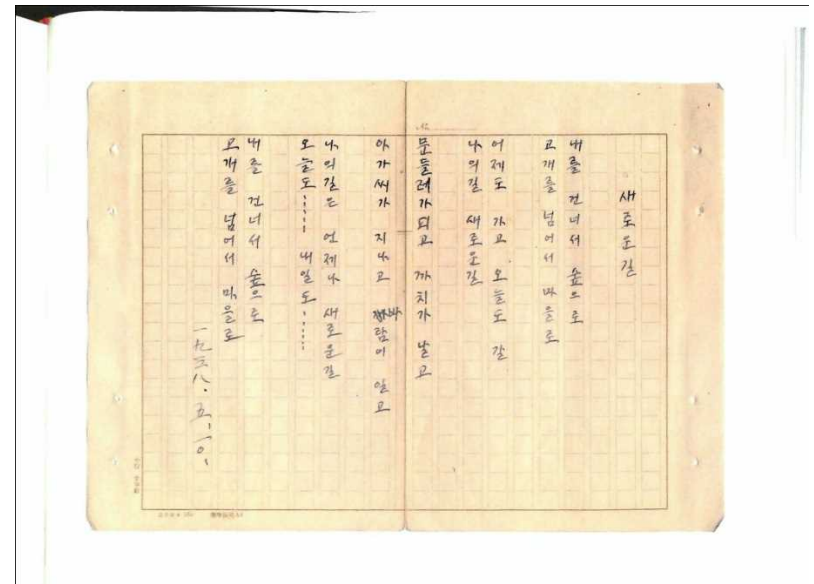 새로운길
내를 건너서 숲으로
고개를 넘어서 마을로
어제도 가고 오늘도 갈
나의길 새로운길
문들레가 피고 까치가 날고
아가씨가 지나고 바람이 일고
나의길은 언제나 새로운길
오늘도…… 내일도……
내를 건너서 숲으로
고개를 넘어서 마을로
一九三八・五・一〇・